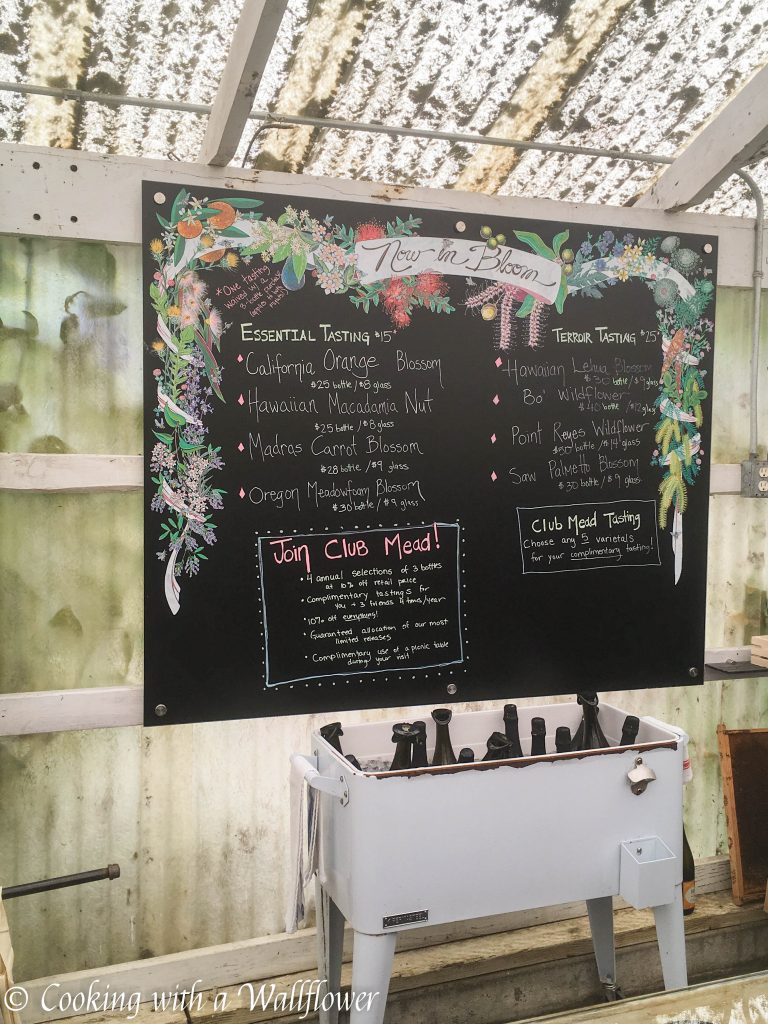 Now in Bloom
*One tasting
waived w/ a
3-bottle purchase
ESSENTIAL TASTING $15
California Orange Blossom
$25 bottle / $8 glass
Hawaiian Macadamia Nut
$25 bottle / $8 glass
Madras Carrot Blossom
$28 bottle / $9 glass
Oregon Meadowfoam Blossom
$30 bottle / $9 glass
TERROIR TASTING $25
Hawaiian Lehua Blossom
$30 bottle / $9 glass
Bo' Wildflower
$40 bottle / $12 glass
Point Reyes Wildflower
bottle / $14 glass
Saw Palmetto Blossom
$30 bottle / $9 glass
CLUB MEAD TASTING
Choose any 5 varietals
for your complimentary tasting!
JOIN CLUB MEAD!
• 4 annual selections of 3 bottles
at 10% off retail price
• Complimentary tastings for
you + 3 friends 4 times/year
• 10% off everything!
• Guaranteed allocation of our most
limited releases
• Complimentary use of a picnic table
during your visit
© Cooking with a Wallflower